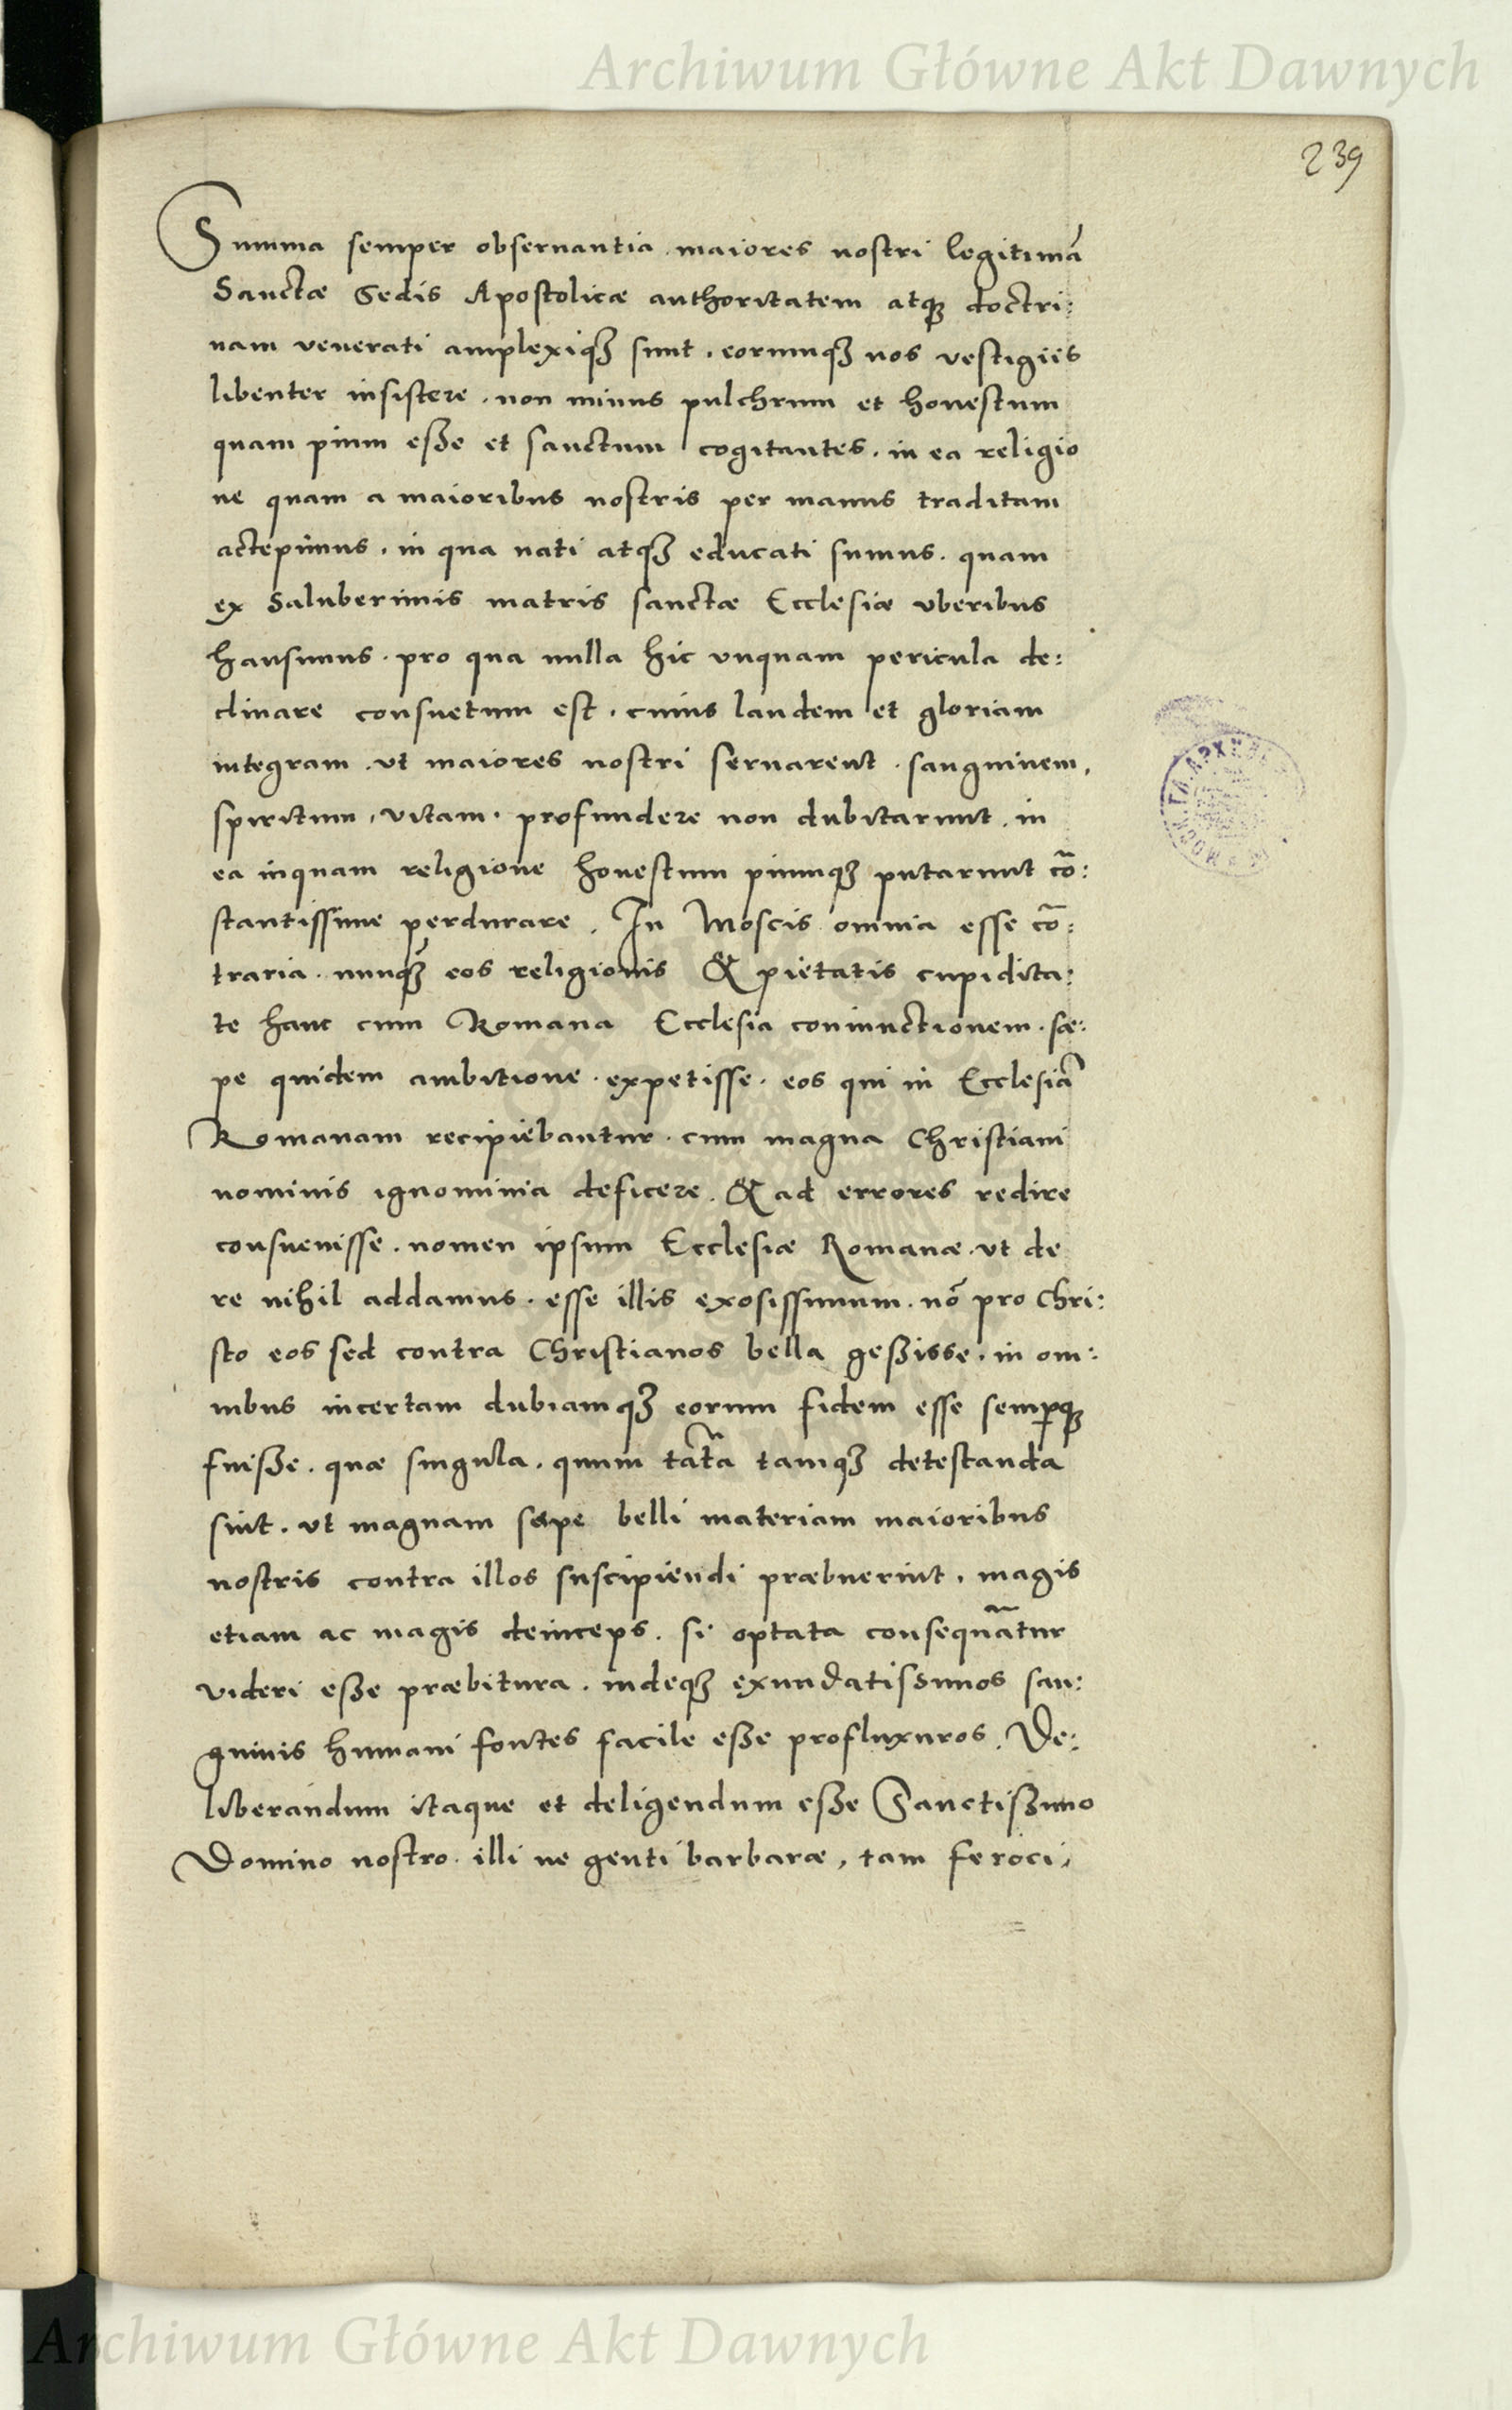 Archiwum Główne Akt Dawnych
239
Summa semper obseruantia maiores nostri legitimā
Sanctæ Sedis Apostolicæ authoritatem atqꝫ doctri:
nam venerati amplexiqꝫ sunt. eorumqꝫ nos vestigiis
libenter insistere. non minus pulchrum et honestum
quam pium eße et sanctum cogitantes. in ea religio
ne quam a maioribus nostris per manus traditam
accepimus. in qua nati atqꝫ educati sumus. quam
ex saluberimis matris sanctæ Ecclesiæ vberibus
hausimus. pro qua nulla hic vnquam pericula de:
clinare consuetum est. cuius laudem et gloriam
integram. vt maiores nostri seruarent. sanguinem,
spiritum, vitam. profundere non dubitarunt. in
ea inquam religione honestum piumqꝫ putarunt cō:
stantissime perdurare. In Moscis omnia esse cō:
traria. nunqꝫ̃ eos religionis & pietatis cupidita:
te hanc cum Romana Ecclesia coniunctionem. sæ:
pe quidem ambitione. expetisse. eos qui in Ecclesiā
Romanam recipiebantur. cum magna Christiani
nominis ignominia deficere. & ad errores redire
consueuisse. nomen ipsum Ecclesiæ Romanæ. vt de
re nihil addamus. esse illis exosissimum. nō pro Chri:
sto eos sed contra Christianos bella geßisse. in om:
nibus incertam dubiamqꝫ eorum fidem esse semp̱qꝫ
fuiße. quæ singula. quum tāta tamqꝫ detestanda
sint. vt magnam sæpe belli materiam maioribus
nostris contra illos suscipiendi præbuerint. magis
etiam ac magis deinceps. si optata consequātur
videri eße præbitura. indeqꝫ exundatissimos san:
guinis humani fontes facile eße profluxuros. De:
liberandum itaque et deligendum eße Sanctißimo
Domino nostro. illi ne genti barbaræ, tam feroci,
Archiwum Główne Akt Dawnych